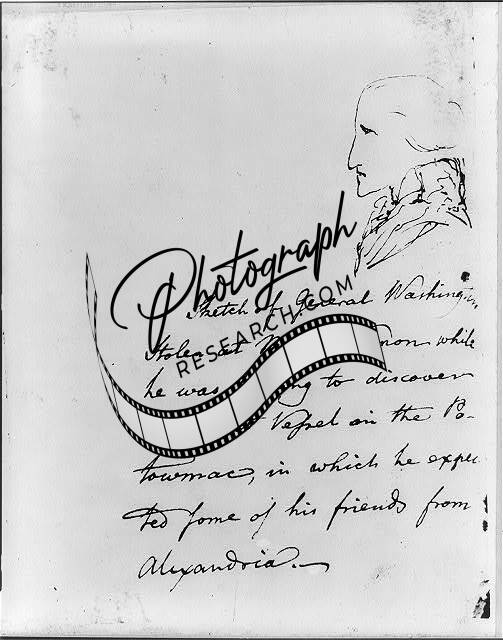 Photograph
RESEARCH.COM
Sketch of General Washington
Stolen at non while
he was ing to discover
Vefsel on the Po-
towmac, in which he expec
ted some of his friends from
Alexandria.—